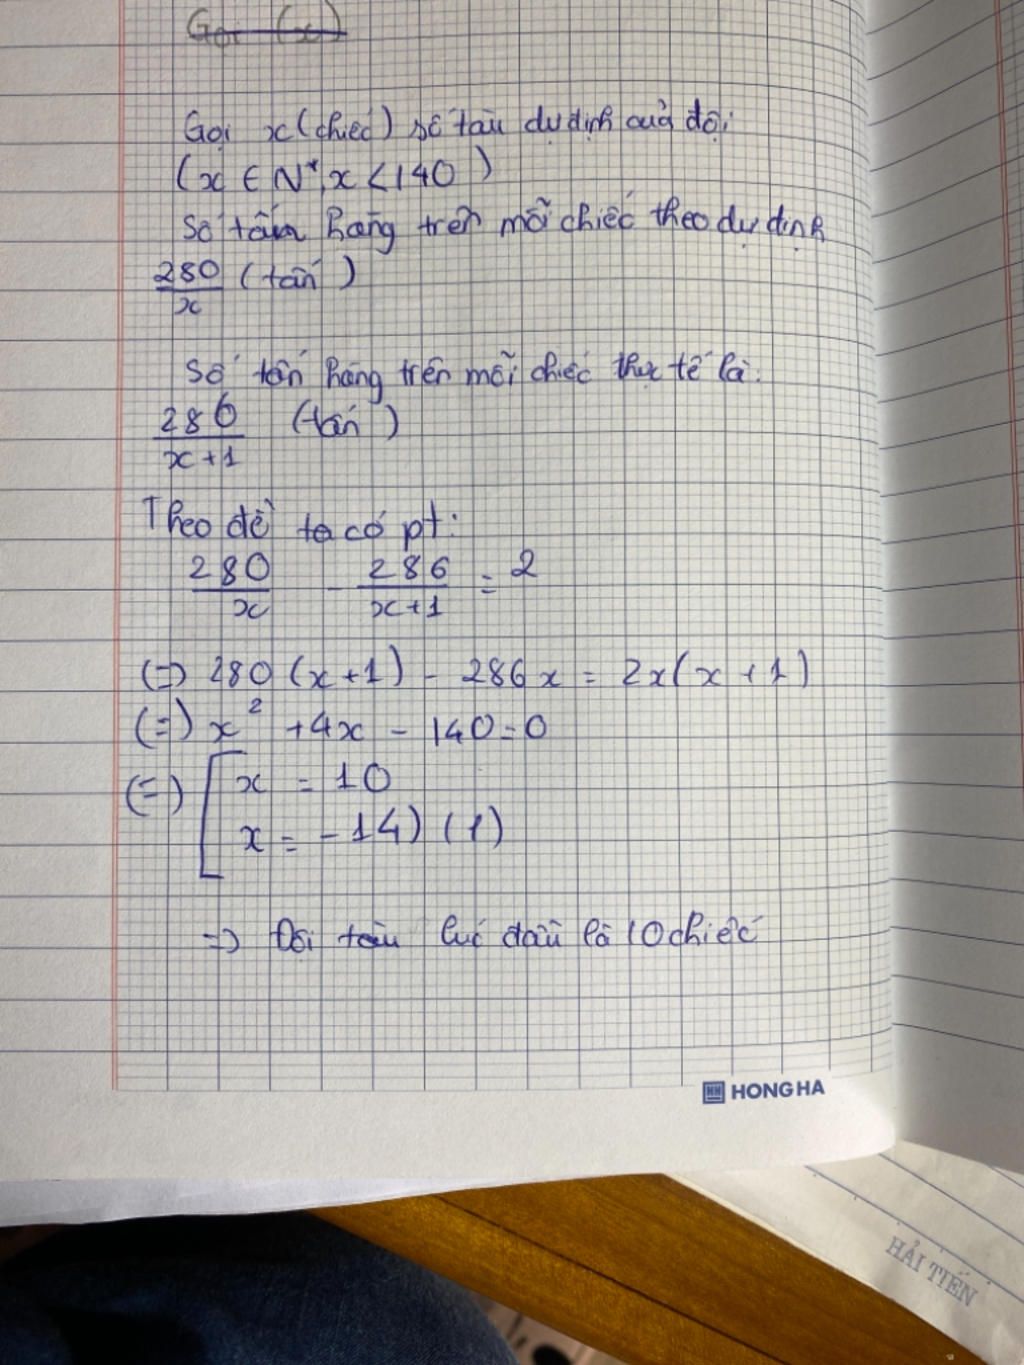 Gọi (x)
Gọi x (chiếc) số tàu dự định của đội
(x ∈ N*, x < 140)
Số tấn hàng trên mỗi chiếc theo dự định
280/x (tấn)
Số tấn hàng trên mỗi chiếc thực tế là:
286/x+1 (tấn)
Theo đề ta có pt:
280/x - 286/x+1 = 2
(=) 280(x+1) - 286x = 2x(x+1)
(=) x² + 4x - 140 = 0
(=) [ x = 10
x = -14) (1)
=> Đội tàu lúc đầu là 10 chiếc
HONG HA
HẢI TIẾN